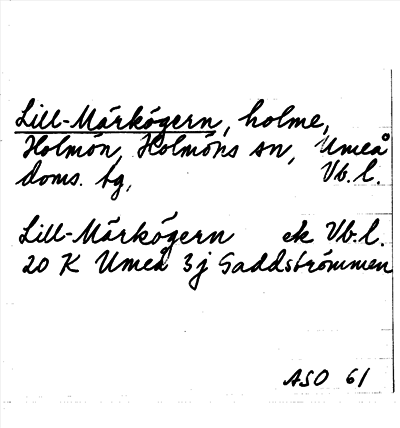 Lill-Märkögern, holme,
Holmön, Holmöns sn, Umeå
doms. tg, Vb. l.
Lill-Märkögern ek Vb. l.
20 K Umeå 3j Gaddströmmen
ASO 61